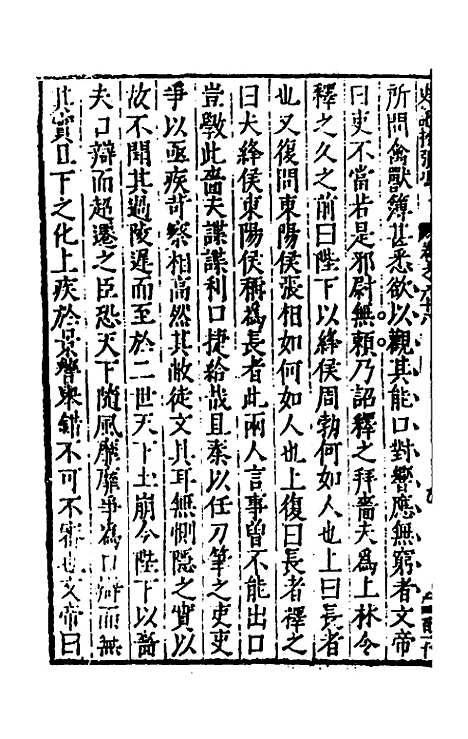 所問禽獸簿甚悉欲以觀其能口對響應無窮者文帝
曰吏不當若是邪尉無賴乃詔釋之拜嗇夫爲上林令
釋之久之前曰陛下以絳侯周勃何如人也上曰長者
也又復問東陽侯張相如何如人也上復曰長者釋之
曰夫絳侯東陽侯稱爲長者此兩人言事曾不能出口
豈斆此嗇夫諜諜利口捷給哉且秦以任刀筆之吏吏
爭以亟疾苛察相高然其敝徒文具耳無惻隱之實以
故不聞其過陵遲而至於二世天下土崩今陛下以嗇
夫口辯而超遷之臣恐天下隨風靡靡爭為口辯而無
其實且下之化上疾於景響舉錯不可不審也文帝曰